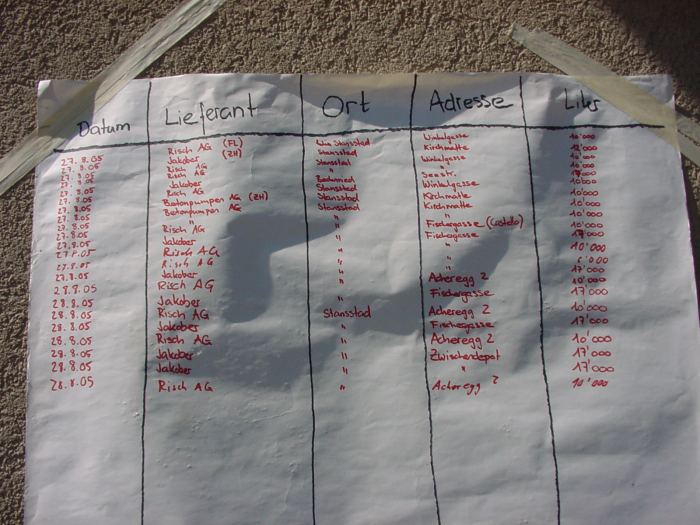 Datum Lieferant Ort Adresse Liter
27.8.05 Risch AG (FL) Stansstad Winkelgasse 10'000
27.8.05 Jakober (ZH) Stansstad Kirchmatte
27.8.05 Risch AG Stansstad Winkelgasse 10'000
27.8.05 Risch AG " " 10'000
27.8.05 Jakober Seestr.
27.8.05 Risch AG Stansstad Winkelgasse 10'000
27.8.05 Betonpumpen AG (ZH) Stansstad Kirchmatte 10'000
27.8.05 Betonpumpen AG Stansstad Kirchmatte 10'000
27.8.05 Risch AG " Fischergasse 10'000
27.8.05 Jakober " Fischergasse 17'000
27.8.05 Risch AG " " 10'000
27.8.05 Risch AG " "
27.8.05 Jakober " " 17'000
28.8.05 Risch AG Acheregg 2 10'000
28.8.05 Jakober " Fischergasse 17'000
28.8.05 Risch AG Stansstad Acheregg 2 10'000
28.8.05 Jakober " Fischergasse 17'000
28.8.05 Risch AG " Acheregg 2 10'000
28.8.05 Jakober " Zwischendepot 17'000
28.8.05 Jakober " " 17'000
28.8.05 Risch AG " Acheregg 2 10'000